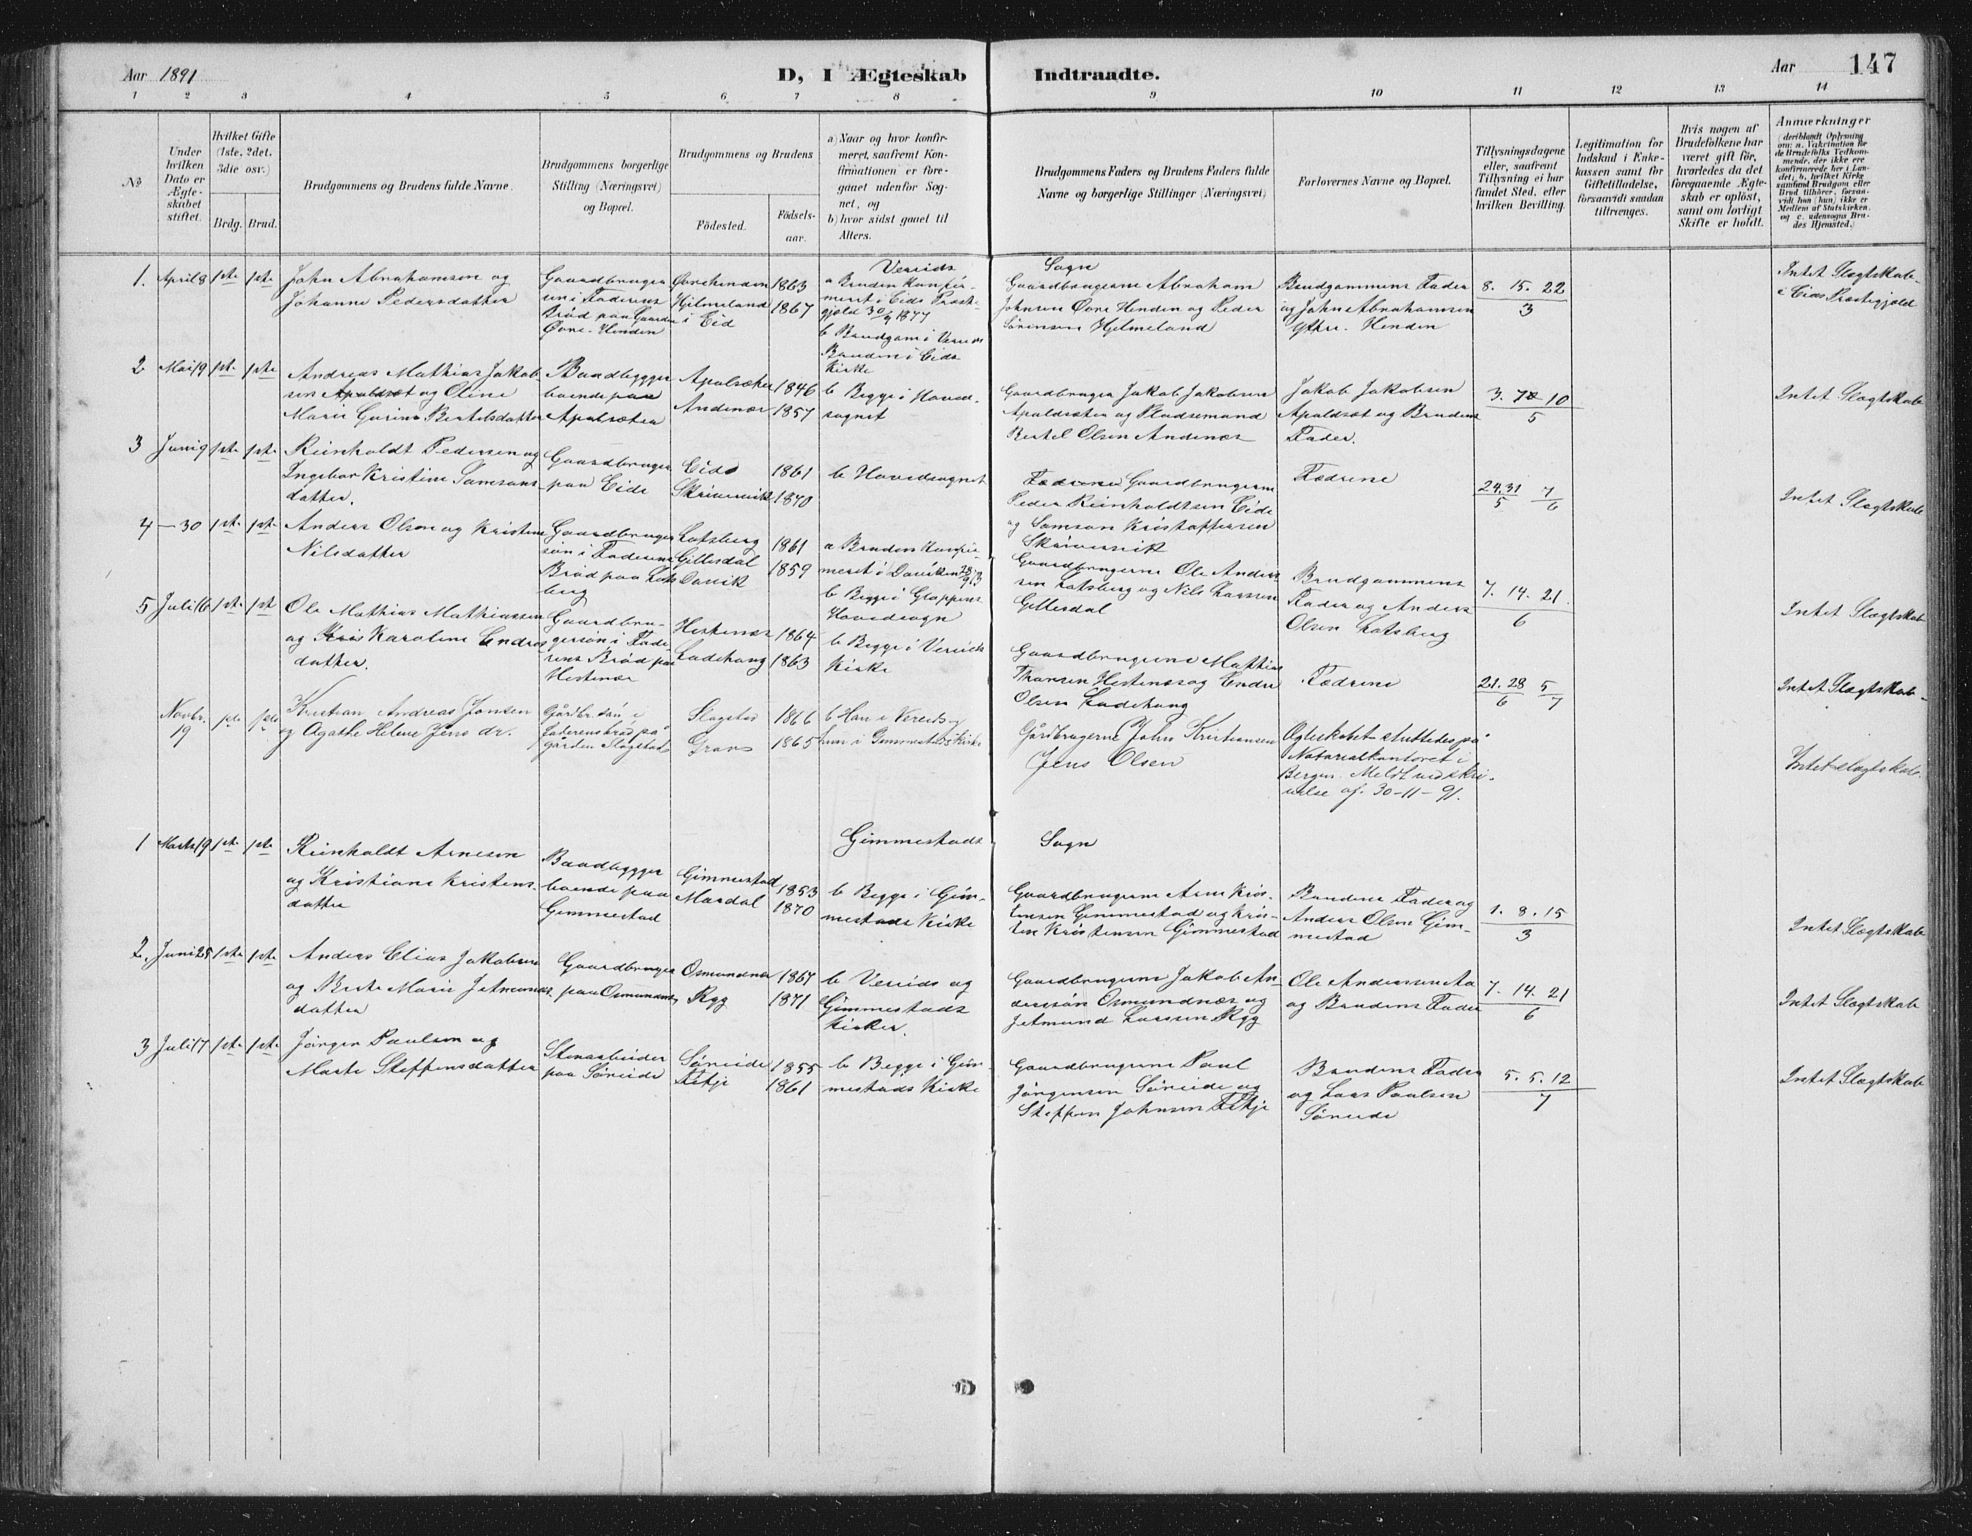 Aar 1891
D, I Ægteskab Indtraadte.
Aar 147
1 2 3 4 5 6 7 8 9 10 11 12 13 14
№
Under hvilken Dato er Ægteskabet stiftet.
Hvilket Gifte (1ste, 2det, 3die osv.)
Brdg. Brud.
Brudgommens og Brudens fulde Navne.
Brudgommens borgerlige Stilling (Næringsvei) og Bopæl.
Brudgommens og Brudens
Födested.
Födselsaar.
a) Naar og hvor konfirmeret, saafremt Konfirmationen er foregaaet udenfor Sognet, og
b) hvor sidst gaaet til Alters.
Brudgommens Faders og Brudens Faders fulde Navne og borgerlige Stillinger (Næringsvei)
Forlovernes Navne og Bopæl.
Tillysningsdagene eller, saafremt Tillysning ei har fundet Sted, efter hvilken Bevilling.
Legitimation for Indskud i Enkekassen samt for Giftetilladelse, forsaavidt saadan tiltrænges.
Hvis nogen af Brudefolkene har været gift för, hvorledes da det foregaaende Ægteskab er oplöst, samt om lovligt Skifte er holdt.
Anmærkninger
(deriblandt Oplysning om: a. Vakcination for de Brudefolks Vedkommende, der ikke ere konfirmerede her i Landet; b. hvilket Kirkesamfund Brudgom eller Brud tilhörer, forsaavidt han (hun) ikke er Medlem af Statskirken, og c. udensogns Brudes Hjemsted.)
Vereids Sogn
1. April 8 1ste 1ste
John Abrahamsen og
Johanne Pedersdatter
Gaardbruger
sen i Faderens
Brød paa Gaarden
Øvre-Henden
Øvrehenden
Hjelmeland
i Eid
1863
1867
a Bruden konfir-
meret i Eids Præst-
gjeld 30/9 1877
b Brudgom i Vereids
Bruden i Eids
Kirke
Gaardbrugerne Abraham
Johnsen Øvre Henden og Peder
Sørensen Hjelmeland
Brudgommens Fader
og John Abrahamsen
Ytre-Henden
8. 15. 22
3
Intet Slægtskab
i Eids Præstegjeld
2 Mai 19 1ste 1ste
Andreas Mathias Jakob-
sen Apaldsæt og Oline
Marie Gurine Bertelsdatter
Baadbygger
boende paa
Apalsæter
Apalsæter
Andenæs
1846
1857
b Begge i Hoved-
sognet
Gaardbruger Jakob Jakobsen
Apaldsæter og Pladsemand
Bertel Olsen Andenæs
Jakob Jakobsen
Apaldsæt og Brudens
Fader.
3. 10
5
Intet Slægtskab
3 Juni 9 1ste 1ste
Reinholdt Pedersen og
Ingebor Kristine Samsons-
datter.
Gaardbruger
paa Eide
Eide
Skrivervik
1861
1870
b Hovedsognet
Fædrene Gaardbrugerne
Peder Reinholdtsen Eide
og Samson Kristoffersen
Skrivervik
Fædrene
24. 31 7
5 6
Intet Slægtskab
4 — 30 1ste 1ste
Anders Olsen og Kristine
Nilsdatter
Gaardbruger
søn i Faderens
Brød paa Lots
berg
Lotsberg
Gillesdal
Davik
1861
1859
a Bruden konfir-
meret i Daviken 28/9 73
b Begge i Gloppens
Hovedsogn
Gaardbrugerne Ole Anders
sen Lotsberg og Nils Larssen
Gillesdal
Brudgommens
Fader og Anders
Olsen Lotsberg
7. 14. 21.
6
Intet Slægtskab
5 Juli 16 1ste 1ste
Ole Mathias Mathiassen
og Karoline Endres
datter.
Gaardbru-
gersøn i Fade-
rens Brød paa
Hestenæs
Hestenæs
Ladehaug
1864
1863
b Begge i Vereids
Kirke
Gaardbrugerne Mathias
Thomsen Hestenæs og Endre
Olsen Ladehaug
Fædrene
21. 28 5
6 7
Intet Slægtskab
Novbr.
19
1ste 1ste
Kristian Andreas Jonsen
og Agathe Helene Jens dr.
Gårdbr. søn i
faderens brød på
gården Slagstad
Slagstad
Grans
1866
1865
b Han i Vereids og
hun i Gimmestads Kirke
Gårdbrugerne John Kristiansen
Jens Olsen
Ægteskabet sluttedes på
Notarialkontoret i
Bergen. Meldt ved skri-
velse af 30-11-91.
Intet slægtskab
Gimmestads Sogn
1 Marts 19 1ste 1ste
Reinholdt Arnesen
og Kristiane Kristens-
datter
Baadbygger
boende paa
Gimmestad
Gimmestad
Mardal
1853
1870
b Begge i Gim-
mestads Kirke
Gaardbrugerne Arne Kris-
tensen Gimmestad og Kris-
ten Kristensen Gimmestad
Brudens Fader og
Anders Olsen Gim-
mestad
1. 8. 15
3
Intet Slægtskab
2. Juni 25 1ste 1ste
Anders Elias Jakobsen
og Berte Marie Jetmunds
datter
Gaardbruger
paa Osmundnæs
Osmundnæs
Ryg
1867
1871
b Vereids og
Gimmestads
Kirker.
Gaardbrugerne Jakob An-
dersson Osmundnæs og
Jetmund Larssen Ryg
Ole Anderssen Aa
og Brudens Fader
7. 14. 21
6
Intet Slægtskab
3 Juli 17 1ste 1ste
Jørgen Paulsen og
Marte Steffensdatter
Stenarbeider
paa Søreide
Søreide
Fitje
1855
1861
b Begge i Gim-
mestads Kirke
Gaardbrugerne Paul
Jørgensen Søreide og
Steffen Johnsen Fitje
Brudens Fader
og Lars Paulsen
Søreide
5. 5. 12
7
Intet Slægtskab